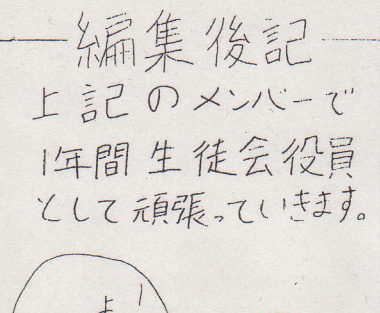 編集後記
上記のメンバーで
1年間生徒会役員
として頑張っていきます。
よ